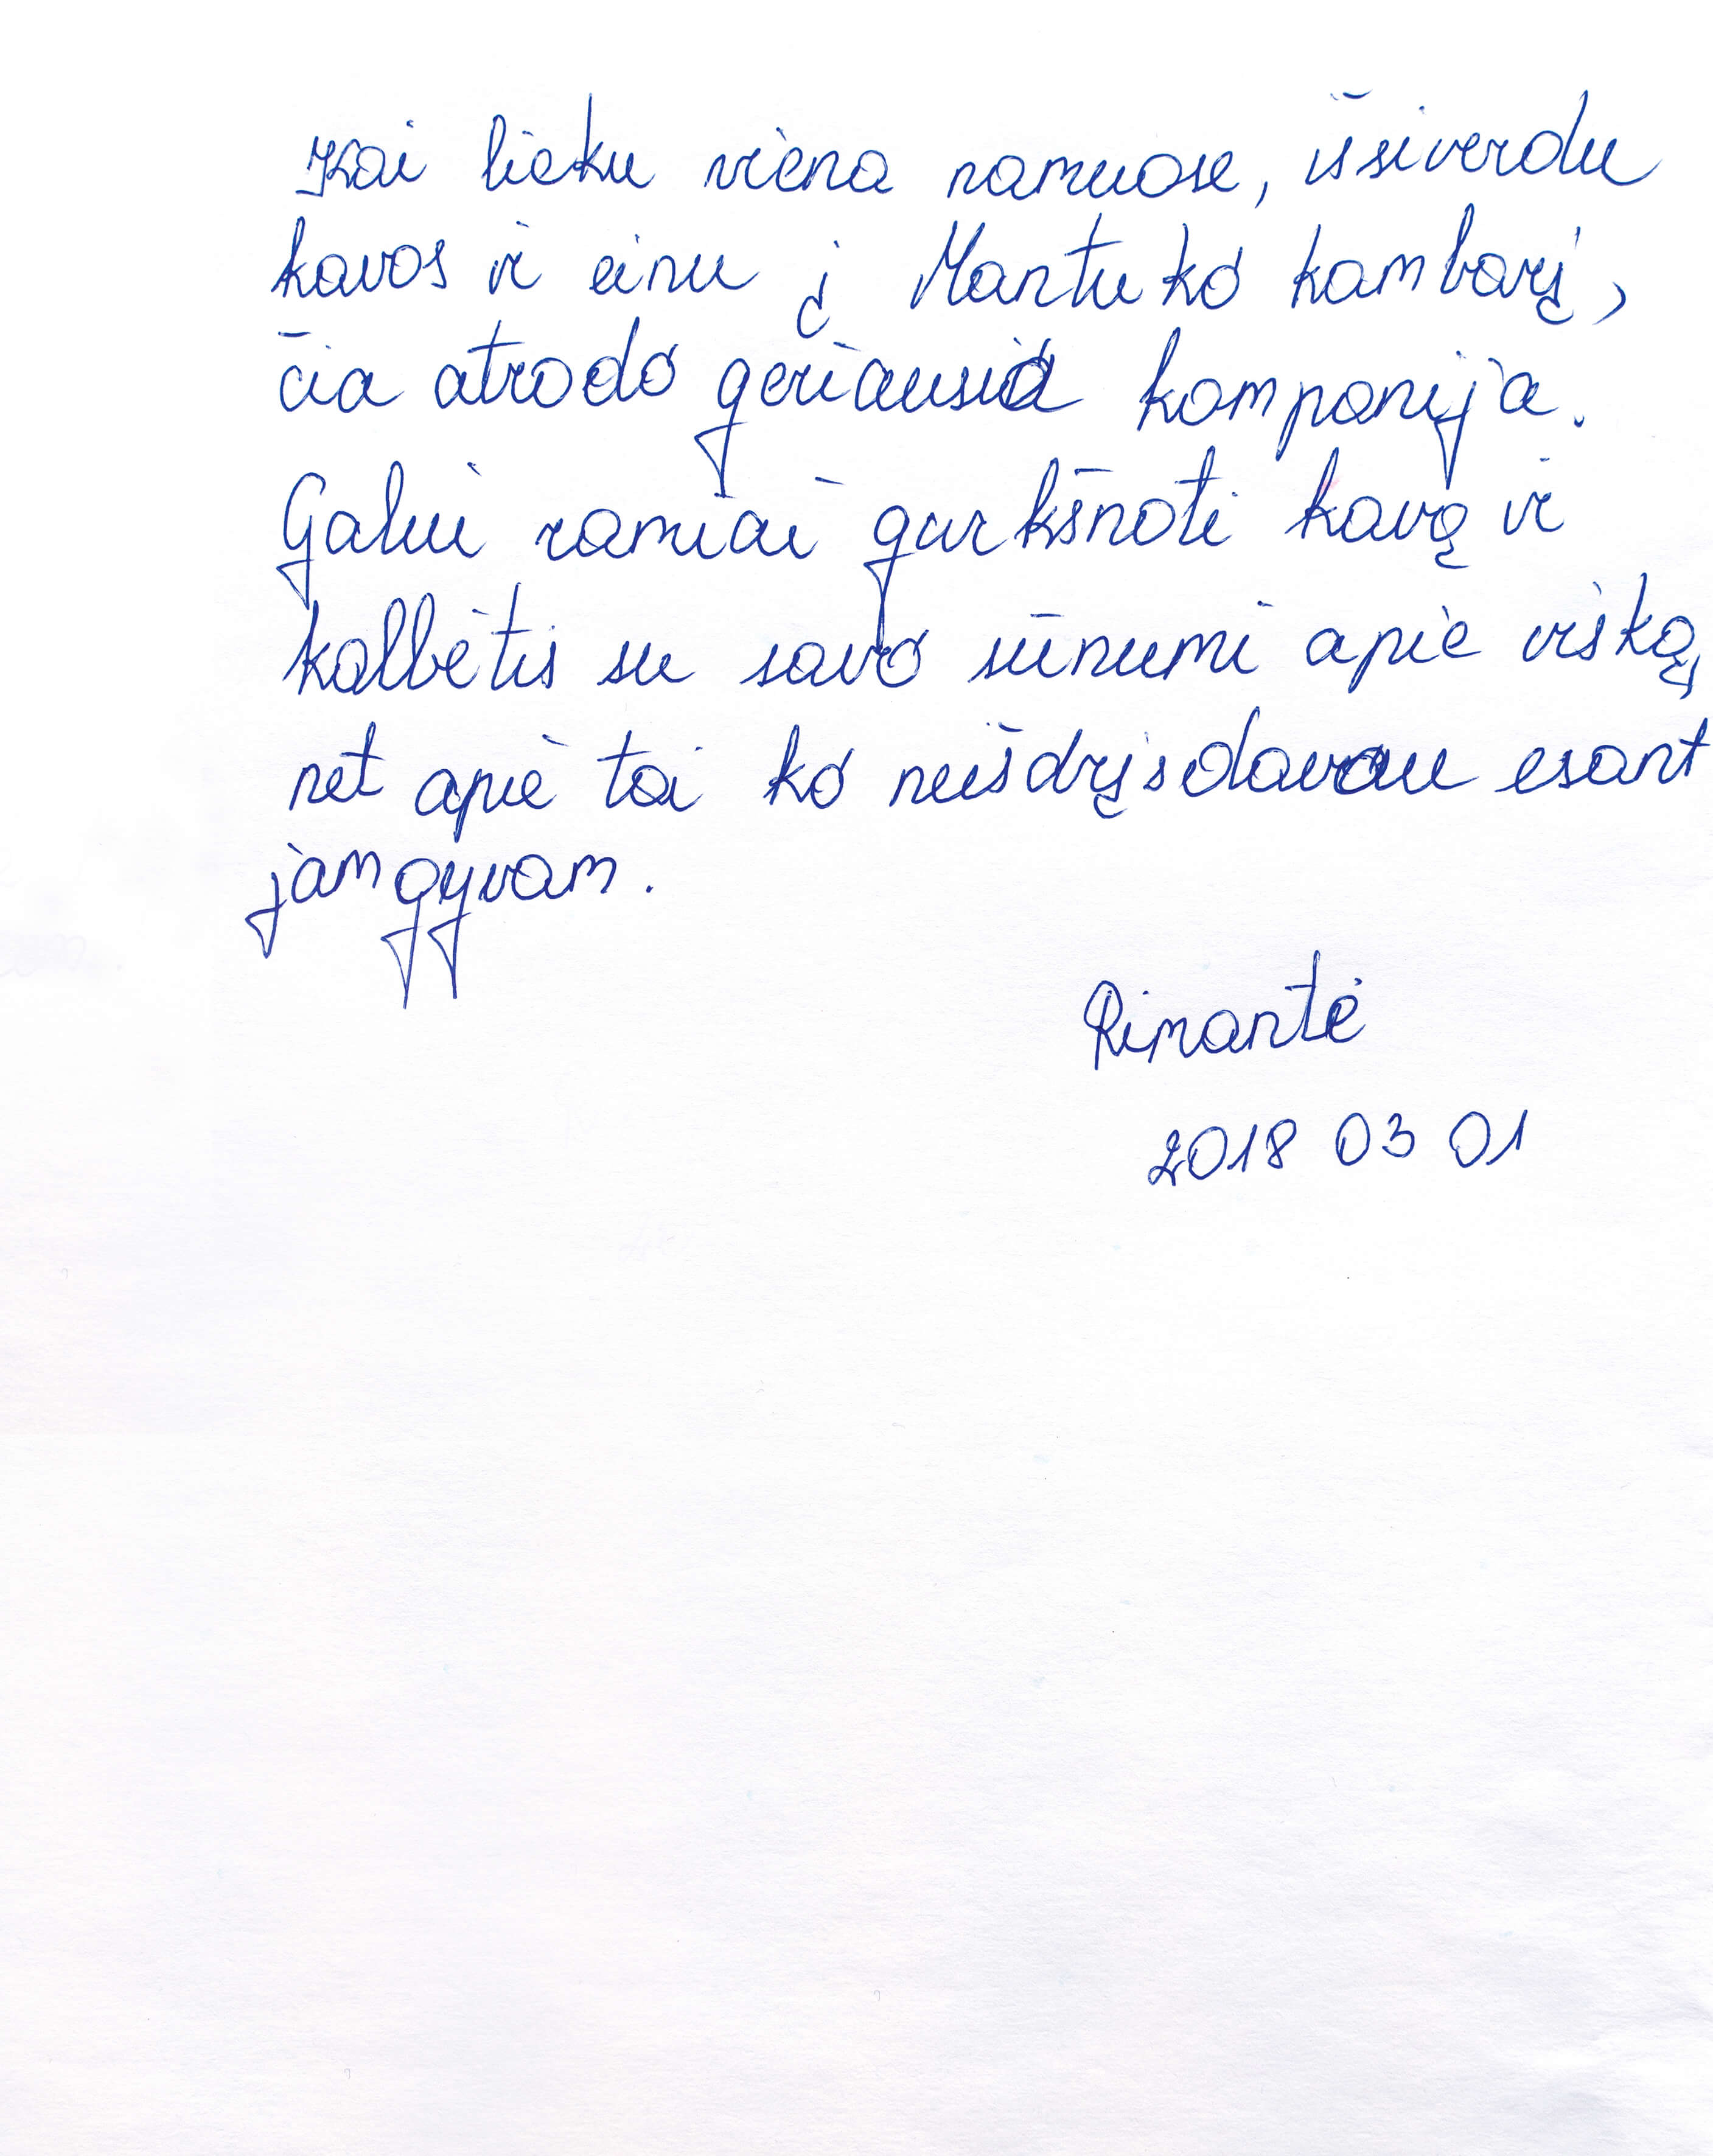 Kai lieku viena namuose, išsiverdu
kavos ir einu į Mantuko kambarį,
čia atrodo geriausia kompanija.
Galiu ramiai gurkšnoti kavą ir
kalbėtis su savo sūnumi apie viską,
net apie tai ko neišdrįsdavau esant
jam gyvam.
Rimantė
2018 03 01